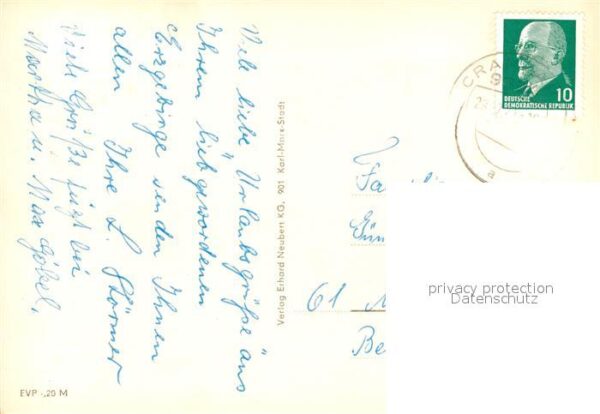 Viele liebe Urlaubsgrüße aus
Ihrem liebgewordenen
Erzgebirge senden Ihnen
allen Ihre L. Störmer
Viele Grüße fügt bei
Martha u. Max Göbel.
Verlag Erhard Neubert KG, 901 Karl-Marx-Stadt
EVP -,20 M
CRA
9
10
DEUTSCHE
DEMOKRATISCHE REPUBLIK
a
Fa
Gün
61
Be
privacy protection
Datenschutz